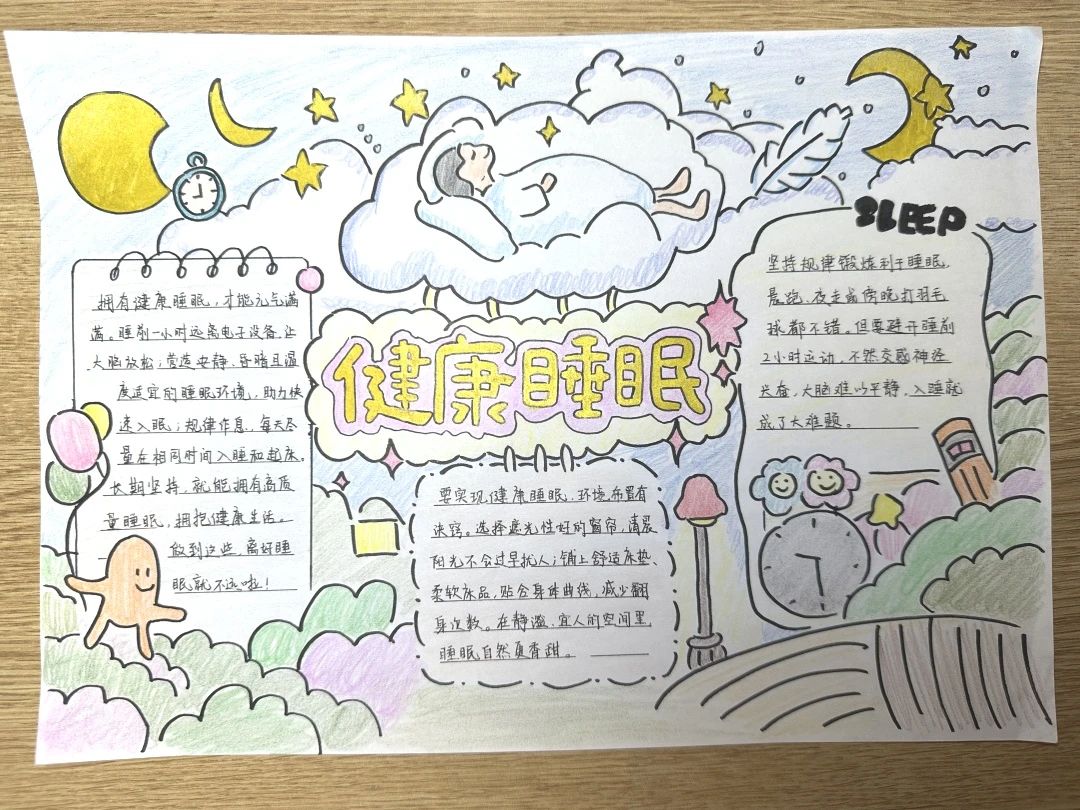 SLEEP
健康睡眠
拥有健康睡眠，才能元气满
满。睡前一小时远离电子设备，让
大脑放松；营造安静、昏暗且温
度适宜的睡眠环境，助力快
速入眠；规律作息，每天尽
量在相同时间入睡和起床。
长期坚持，就能拥有高质
量睡眠，拥抱健康生活。
做到这些，离好睡
眠就不远啦！
要实现健康睡眠，环境布置有
诀窍。选择遮光性好的窗帘，清晨
阳光不会过早扰人；铺上舒适床垫、
柔软床品，贴合身体曲线，减少翻
身次数。在静谧、宜人的空间里，
睡眠自然更香甜。
坚持规律锻炼利于睡眠，
晨跑、夜走或傍晚打羽毛
球都不错。但要避开睡前
2小时运动，不然交感神经
兴奋，大脑难以平静，入睡就
成了大难题。